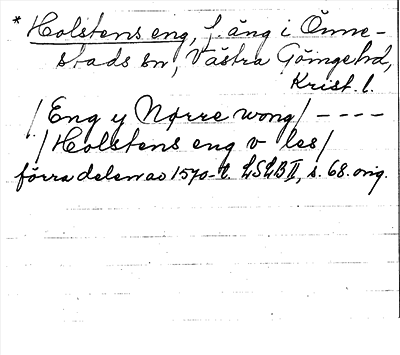 * Holstens eng, f. äng i Önne-
stads sn, Västra Göingehd,
Krist. l.
/Eng y Nørre wong/ ----
/Holstens eng v les/
förra delen av 1570-t. LSLB II, s. 68. orig.